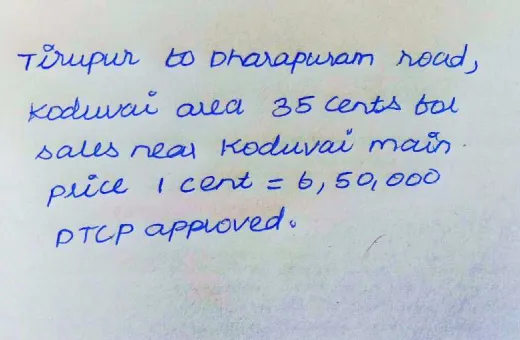 Tirupur to Dharapuram road,
Koduvai area 35 cents for
sales near Koduvai main
price 1 cent = 6,50,000
DTCP approved.